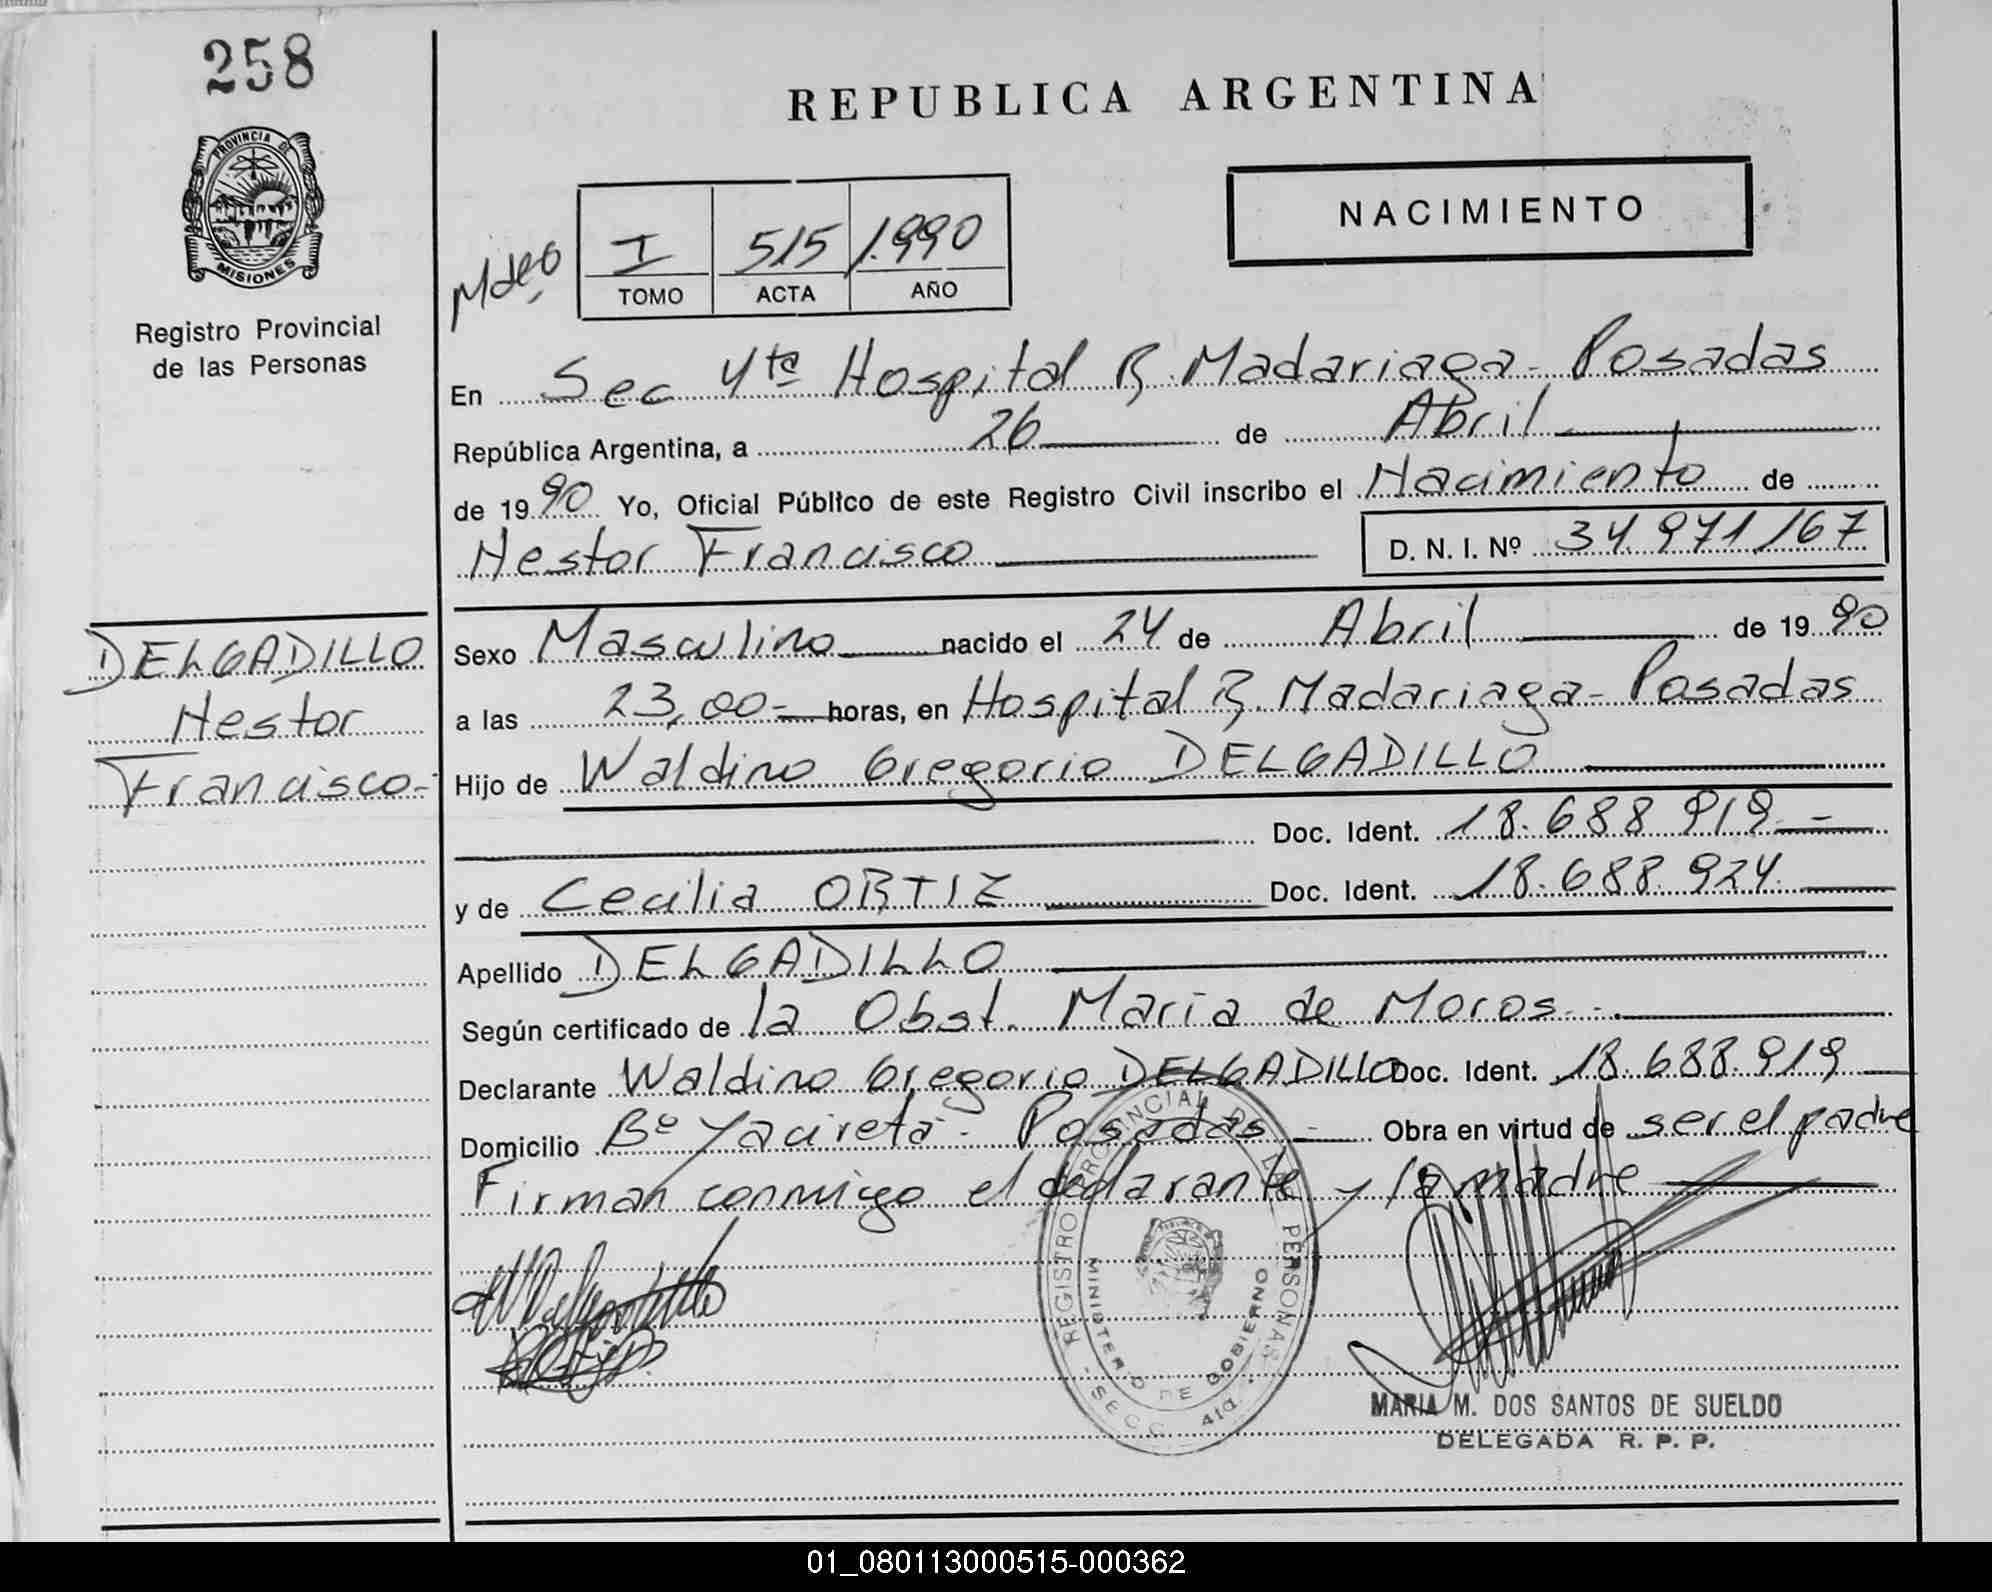 258
REPUBLICA ARGENTINA
PROVINCIA DE
MISIONES
Registro Provincial
de las Personas
NACIMIENTO
I 515 1.990
TOMO ACTA AÑO
En Sec 4ta Hospital R. Madariaga - Posadas
República Argentina, a 26 de Abril
de 1990 Yo, Oficial Público de este Registro Civil inscribo el Nacimiento de
Nestor Francisco D. N. I. Nº 34.971,167
DELGADILLO
Nestor
Francisco.-
Sexo Masculino nacido el 24 de Abril de 1990
a las 23,00- horas, en Hospital R. Madariaga - Posadas
Hijo de Waldino Gregorio DELGADILLO
Doc. Ident. 18.688.919.-
y de Cecilia ORTIZ Doc. Ident. 18.688.924.
Apellido DELGADILLO
Según certificado de la Obst. Maria de Moros.-.
Declarante Waldino Gregorio DELGADILLO Doc. Ident. 18.688.919
Domicilio Bº Yacireta - Posadas.- Obra en virtud de ser el padre
Firman conmigo el declarante y la madre
REGISTRO PROVINCIAL DE LAS PERSONAS
MINISTERIO DE GOBIERNO
SECC. 4ta.
MARIA M. DOS SANTOS DE SUELDO
DELEGADA R. P. P.
01_080113000515-000362